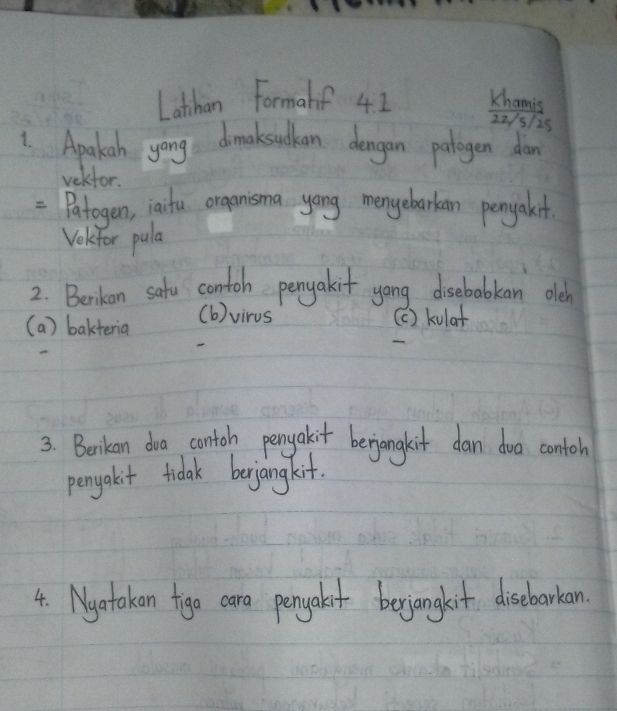 Latihan Formatif 4.1
Khamis
22/5/25
1. Apakah yang dimaksudkan dengan patogen dan
vektor.
= Patogen, iaitu organisma yang menyebarkan penyakit.
Vektor pula
2. Berikan satu contoh penyakit yang disebabkan oleh
(a) bakteria (b) virus (c) kulat
- - -
3. Berikan dua contoh penyakit berjangkit dan dua contoh
penyakit tidak berjangkit.
4. Nyatakan tiga cara penyakit berjangkit disebarkan.